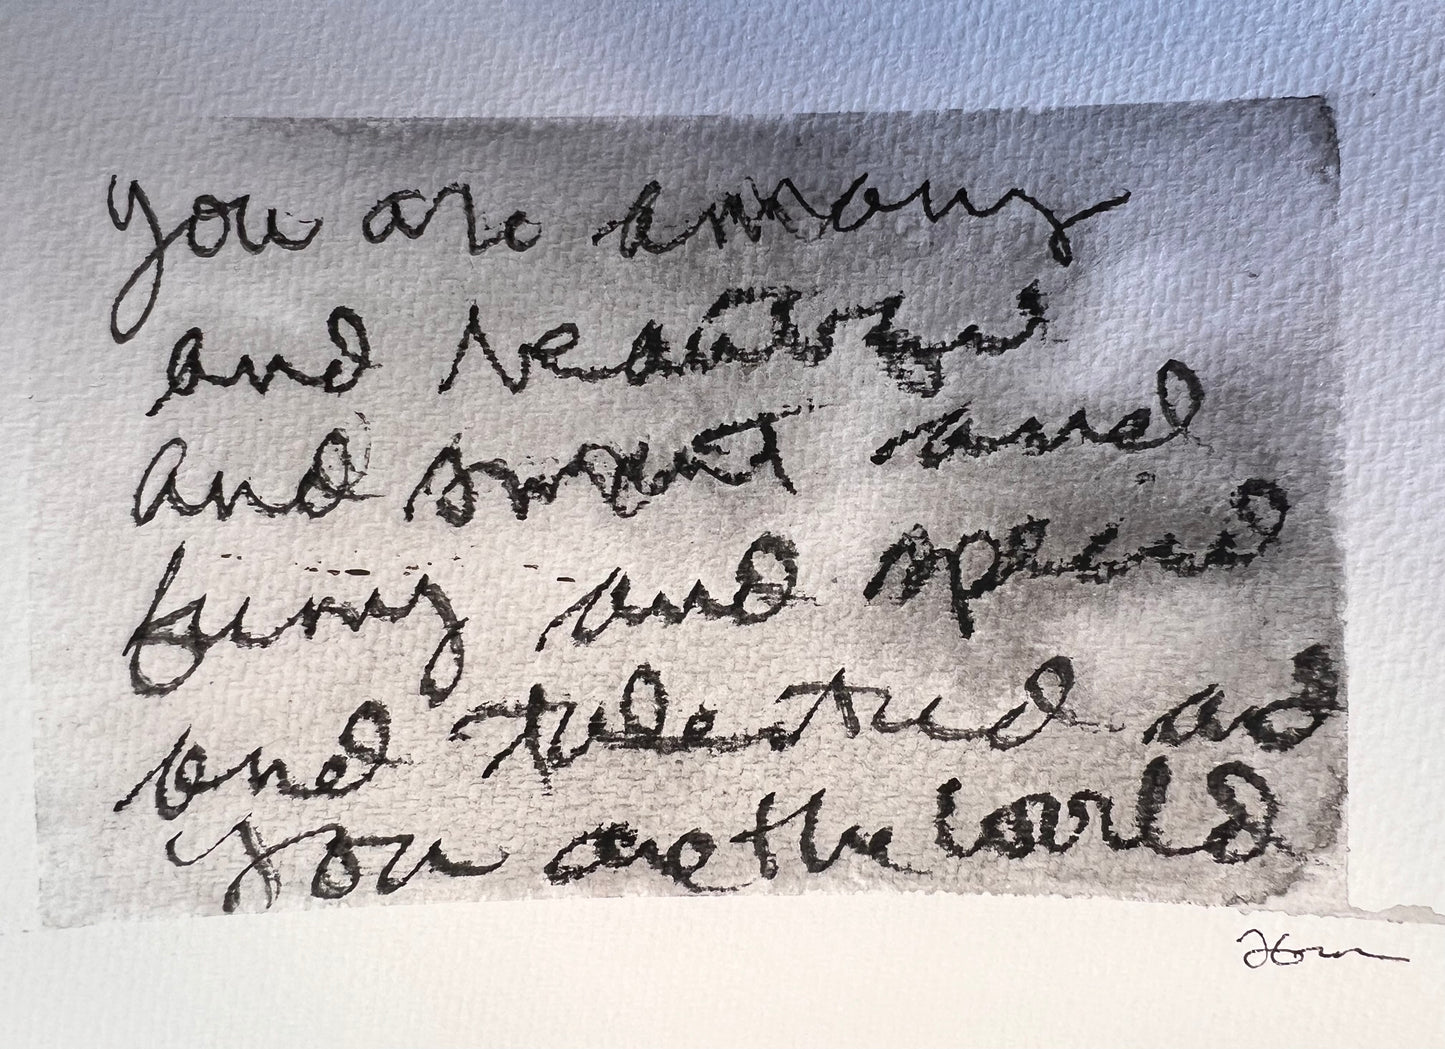 you are amazing
and beautiful
and smart and
funny and special
and talented and
you are the world